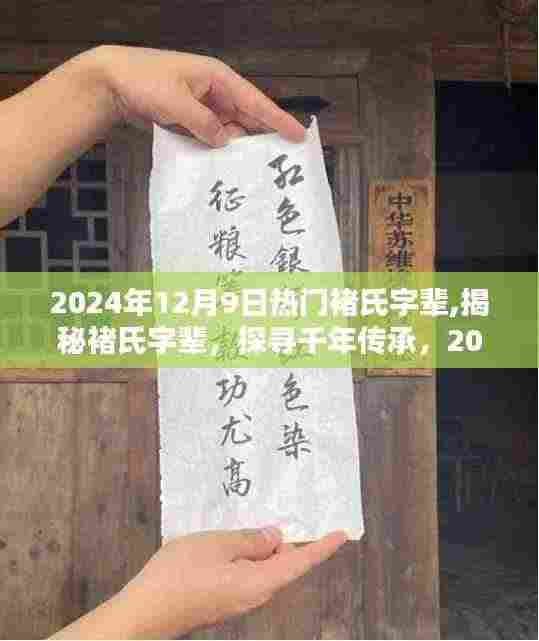 红色银色染
征粮功尤高
中华苏维
2024年12月9日热门褚氏字辈,揭
秘褚氏字辈，探寻千年传承，20